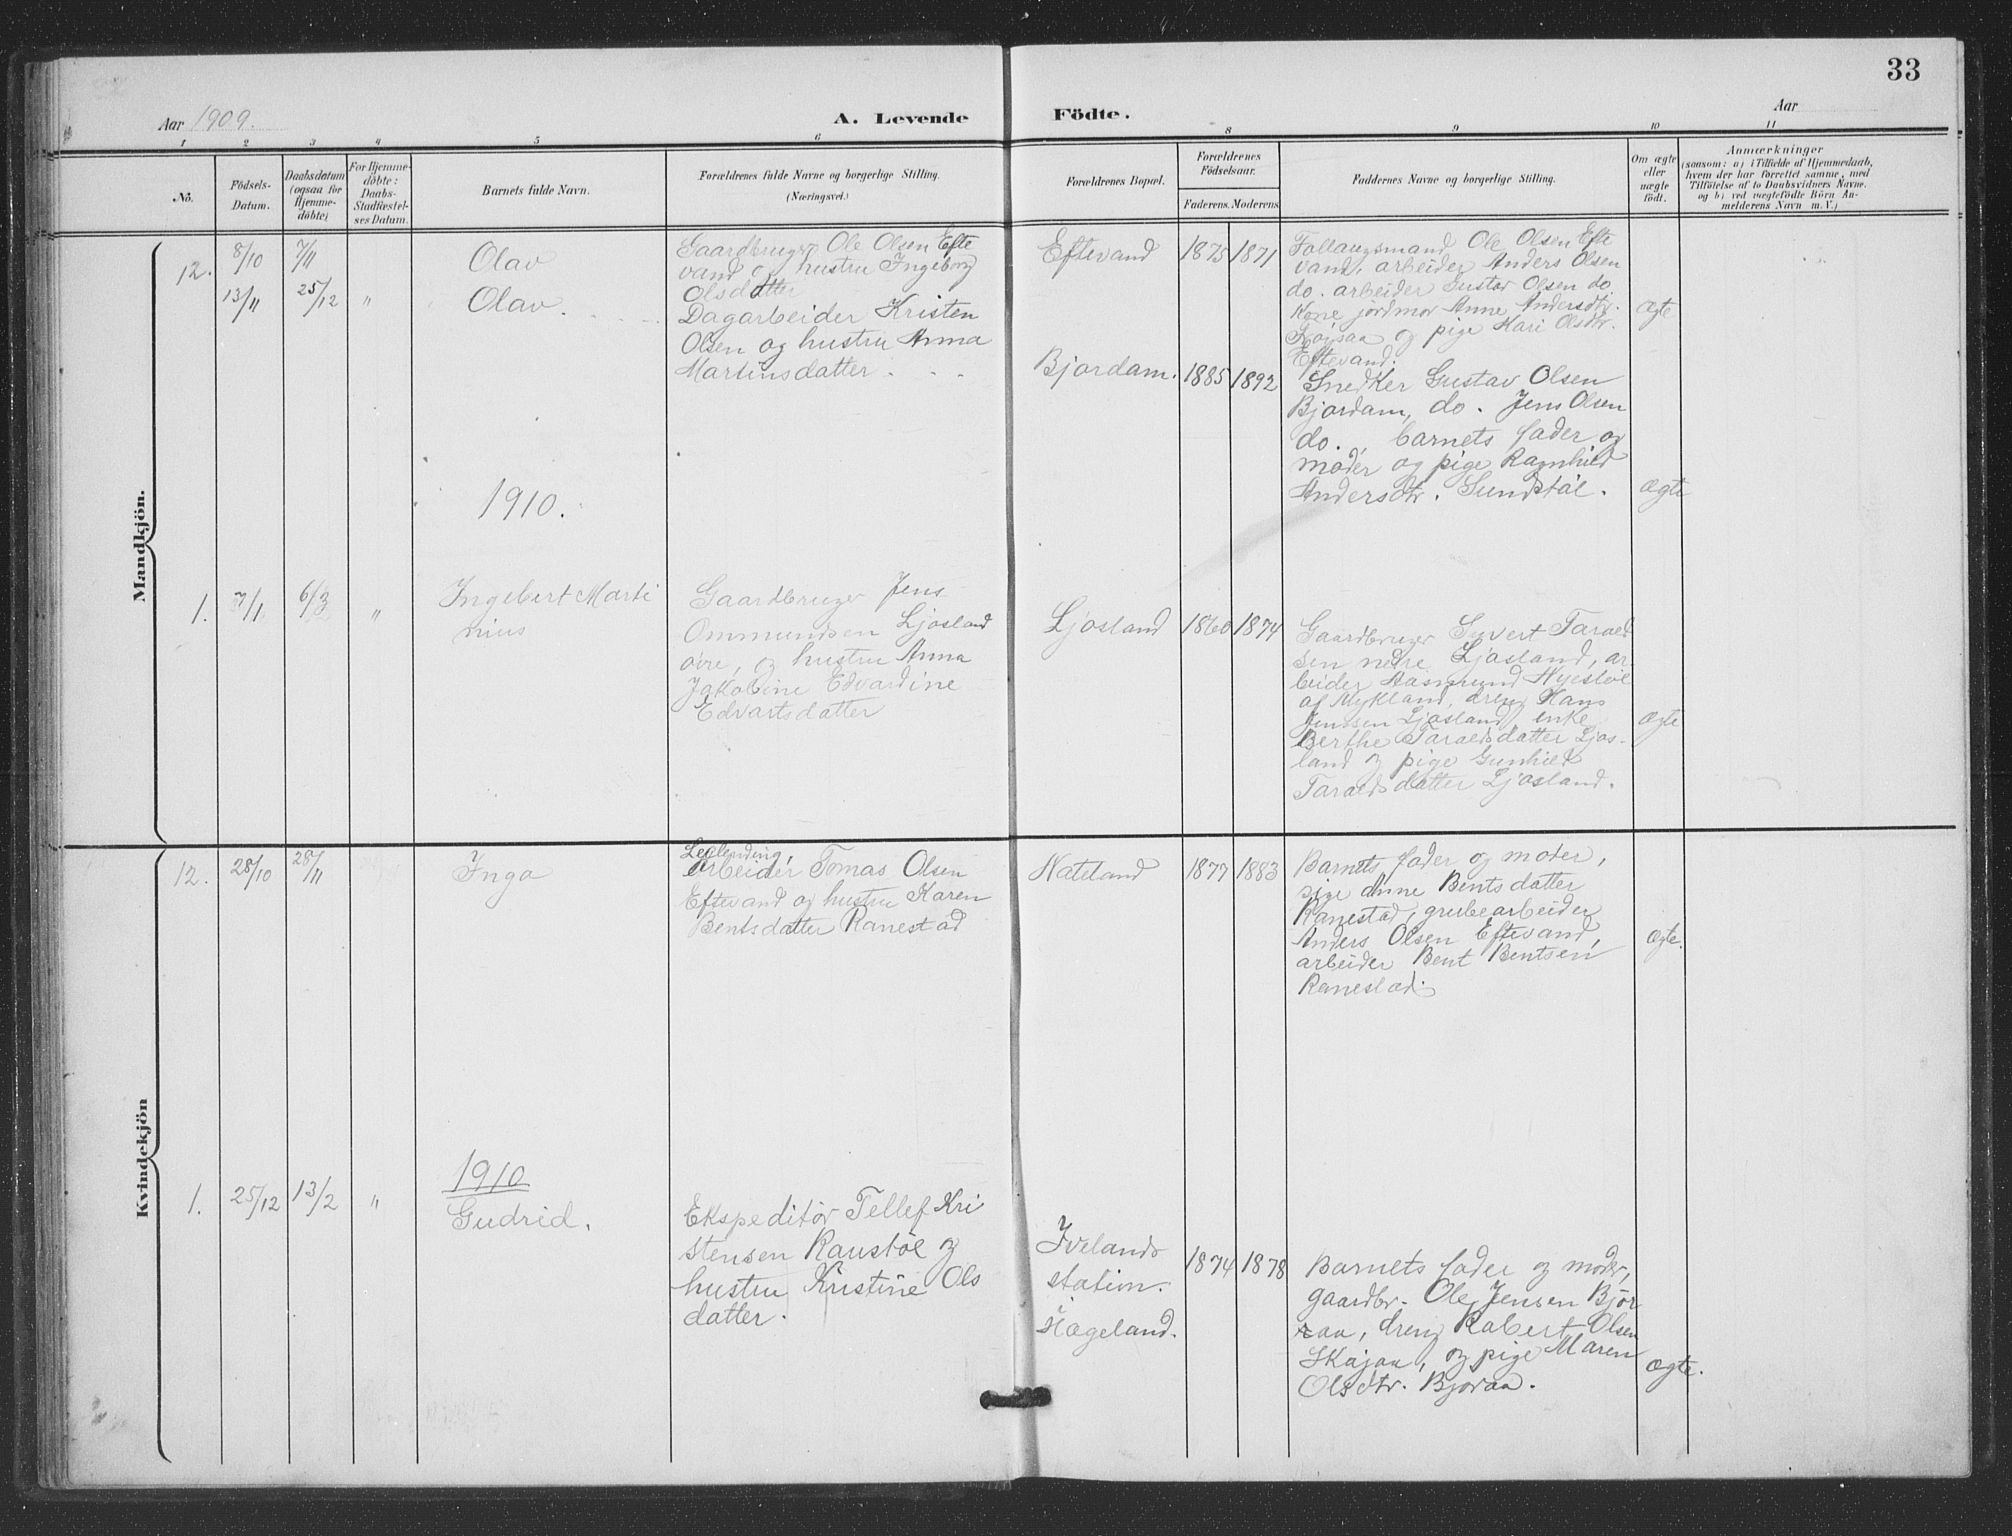 33
Aar 1909.
A. Levende Födte.
Aar
1 2 3 4 5 6 8 9 10 11
No.
Födsels-
Datum.
Daabsdatum
(ogsaa for
Hjemme-
döbte)
For Hjemme-
döbte:
Daabs-
Stadfæstel-
ses Datum.
Barnets fulde Navn.
Forældrenes fulde Navne og borgerlige Stilling.
(Næringsvei.)
Forældrenes Bopæl.
Forældrenes
Födselsaar.
Faderens. Moderens.
Faddernes Navne og borgerlige Stilling.
Om ægte
eller
uægte
födt.
Anmærkninger
(saasom: a) i Tilfælde af Hjemmedaab,
hvem der har forrettet samme, med
Tilföielse af to Daabsvidners Navne,
og b) ved uægtefödte Börn An-
melderens Navn m. V.)
Mandkjön.
12. 8/10 7/11
Olav
Gaardbruger Ole Olsen Efte
vand og hustru Ingeborg
Olsdatter
Eftevand 1875 1871
Ole Olsen Efte
vand, arbeider Anders Olsen
do. arbeider Gustav Olsen do.
Kone jordmor Anne Andersdtr.
og pige Kari Olsdtr.
Eftevand.
ægte
13/11 25/12 "
Olav.
Dagarbeider Kristen
Olsen og hustru Anna
Martinsdatter.
Bjordam. 1885 1892
Snedker Gustav Olsen
Bjordam, do. Jens Olsen
do., barnets fader og
moder og pige Ragnhild
Andersdtr. Sundstøl.
ægte
1910.
1. 7/1 6/3 "
Ingebert Marti
nius
Gaardbruger Jens
Ommundsen Ljosland
øvre, og hustru Anna
Jakobine Edvardine
Edvartsdatter
Ljosland 1860 1874
Gaardbruger Syvert Tarald
sen nedre Ljosland, ar
beider Aasmund Nyestøl
af Mykland, dreng Hans
Jenssen Ljosland, enke
Berthe Taraldsdatter Ljos-
land og pige Gunhild
Taraldsdatter Ljosland.
ægte
Kvindekjön
12. 28/10 28/11
Inga
Leilending,
arbeider Tomas Olsen
Eftevand og hustru Karen
Bentsdatter Ranestad
Nateland 1877 1883
Barnets fader og moder,
pige Anne Bentsdatter
Ranestad, grubearbeider
Anders Olsen Eftevand,
arbeider Bent Bentsen
Ranestad.
ægte.
1910
1. 25/12 13/2 "
Gudrid.
Ekspeditør Tellef Kri
stensen Raustøl og
hustru Kristine Ols
datter.
Ivelands
station.
Hægeland.
1874 1878
Barnets fader og moder,
gaardbr. Ole Jensen Bjor
aa, dreng Robert Olsen
Skajaa, og pige Maren
Olsdtr. Bjoraa.
ægte.